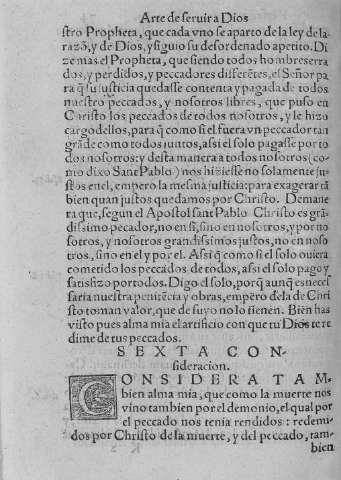 Arte de seruir a Dios
stro Propheta, que cada vno se aparto de la ley de la
razõ, y de Dios, y siguio su desordenado apetito. Di
ze mas el Propheta, que siendo todos hombres erra
dos, y perdidos, y peccadores differẽtes, el Señor pa
ra q̃ su justicia quedasse contenta y pagada de todos
nuestro peccados, y nosotros libres, que puso en
Christo los peccados de todos nosotros, y le hizo
cargo dellos, para q̃ como si el fuera vn peccador tan
grãde como todos juntos, assi el solo pagasse por to
dos nosotros: y desta manera a todos nosotros (co-
mo dixo Sanct Pablo) nos hiziesse no solamente ju-
stos en el, empero la mesma justicia: para exagerar tã
bien quan justos quedamos por Christo. De mane
ra que, segun el Apostol sant Pablo Christo es grã-
dissimo pecador, no en si, sino en nosotros, y por no
sotros, y nosotros grandissimos justos, no en noso-
tros, sino en el y por el. Assi q̃ como si el solo ouiera
cometido los peccados de todos, assi el solo pago y
satisfizo por todos. Digo el solo, porq̃ aunq̃ es neces
saria nuestra penitẽcia y obras, empero de la de Chri
sto toman valor, que de suyo no lo tienen. Bien has
visto pues alma mia el artificio con que tu Dios te re
dime de tus peccados.
SEXTA CON-
sideracion.
CONSIDERA TAM-
bien alma mia, que como la muerte nos
vino tambien por el demonio, el qual por
el peccado nos tenia rendidos: redemi-
dos por Christo de la muerte, y del peccado, tam-
bien